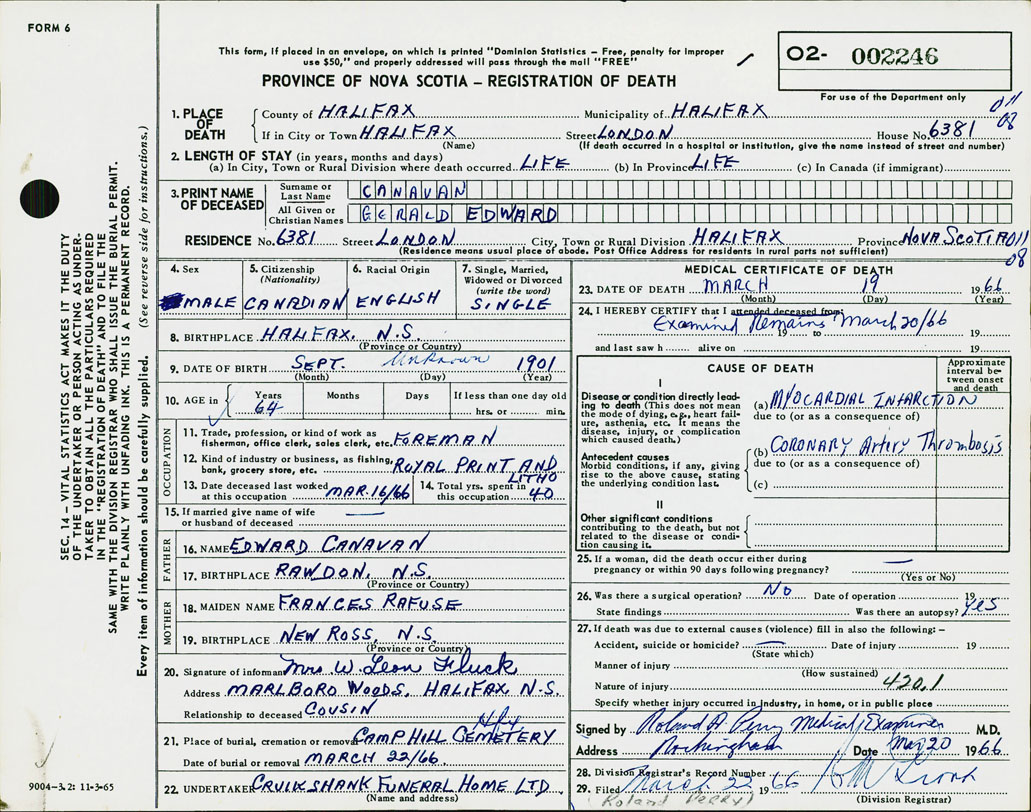 FORM 6
This form, if placed in an envelope, on which is printed "Dominion Statistics – Free, penalty for improper
use $50," and properly addressed will pass through the mail "FREE"
PROVINCE OF NOVA SCOTIA – REGISTRATION OF DEATH
02- 002246
For use of the Department only
011
08
1. PLACE OF DEATH
County of HALIFAX Municipality of HALIFAX
If in City or Town HALIFAX Street LONDON House No. 6381
(Name) (If death occurred in a hospital or institution, give the name instead of street and number)
2. LENGTH OF STAY (in years, months and days)
(a) In City, Town or Rural Division where death occurred LIFE (b) In Province LIFE (c) In Canada (if immigrant)
3. PRINT NAME OF DECEASED
Surname or Last Name CANAVAN
All Given or Christian Names GERALD EDWARD
RESIDENCE No. 6381 Street LONDON City, Town or Rural Division HALIFAX Province NOVA SCOTIA 011
08
(Residence means usual place of abode. Post Office Address for residents in rural parts not sufficient)
4. Sex
MALE
5. Citizenship
(Nationality)
CANADIAN
6. Racial Origin
ENGLISH
7. Single, Married,
Widowed or Divorced
(write the word)
SINGLE
8. BIRTHPLACE HALIFAX, N.S.
(Province or Country)
9. DATE OF BIRTH SEPT. Unknown 1901
(Month) (Day) (Year)
10. AGE in
Years Months Days If less than one day old
64 hrs. or min.
OCCUPATION
11. Trade, profession, or kind of work as
fisherman, office clerk, sales clerk, etc. FOREMAN
12. Kind of industry or business, as fishing,
bank, grocery store, etc. ROYAL PRINT AND
LITHO
13. Date deceased last worked
at this occupation MAR. 16/66
14. Total yrs. spent in
this occupation 40
15. If married give name of wife
or husband of deceased —
FATHER
16. NAME EDWARD CANAVAN
17. BIRTHPLACE RAWDON, N.S.
(Province or Country)
MOTHER
18. MAIDEN NAME FRANCES RAFUSE
19. BIRTHPLACE NEW ROSS, N.S.
(Province or Country)
20. Signature of informant Mrs W. Leon Fluck
Address MARLBORO WOODS, HALIFAX, N.S.
Relationship to deceased COUSIN
21. Place of burial, cremation or removal CAMP HILL CEMETERY Hfx
Date of burial or removal MARCH 22/66
22. UNDERTAKER CRUIKSHANK FUNERAL HOME LTD.
(Name and address)
MEDICAL CERTIFICATE OF DEATH
23. DATE OF DEATH MARCH 19 1966
(Month) (Day) (Year)
24. I HEREBY CERTIFY that I attended deceased from:
Examined Remains March 20/66
19 to 19
and last saw h alive on 19
CAUSE OF DEATH
Approximate
interval be-
tween onset
and death
I
Disease or condition directly lead-
ing to death (This does not
mean the mode of dying, e.g., heart fail-
ure, asthenia, etc. It means the
disease, injury, or complication
which caused death.)
(a) MYOCARDIAL INFARCTION
due to (or as a consequence of)
Antecedent causes
Morbid conditions, if any, giving
rise to the above cause, stating
the underlying condition last.
(b) CORONARY Artery Thrombosis
due to (or as a consequence of)
(c)
II
Other significant conditions
contributing to the death, but not
related to the disease or condi-
tion causing it.
25. If a woman, did the death occur either during
pregnancy or within 90 days following pregnancy? —
(Yes or No)
26. Was there a surgical operation? No Date of operation 19
State findings Was there an autopsy? yes
27. If death was due to external causes (violence) fill in also the following: –
Accident, suicide or homicide? — Date of injury 19
(State which)
Manner of injury
(How sustained)
Nature of injury 420.1
Specify whether injury occurred in industry, in home, or in public place
Signed by Roland A Perry Medical Examiner M.D.
Address Rockingham Date Mar 20 1966
28. Division Registrar's Record Number
29. Filed March 22 1966
(Division Registrar)
Roland Perry)
SEC. 14 – VITAL STATISTICS ACT MAKES IT THE DUTY
OF THE UNDERTAKER OR PERSON ACTING AS UNDER-
TAKER TO OBTAIN ALL THE PARTICULARS REQUIRED
IN THE "REGISTRATION OF DEATH" AND TO FILE THE
SAME WITH THE DIVISION REGISTRAR WHO SHALL ISSUE THE BURIAL PERMIT.
WRITE PLAINLY WITH UNFADING INK. THIS IS A PERMANENT RECORD.
Every item of information should be carefully supplied. (See reverse side for instructions.)
9004-3.2: 11-3-65